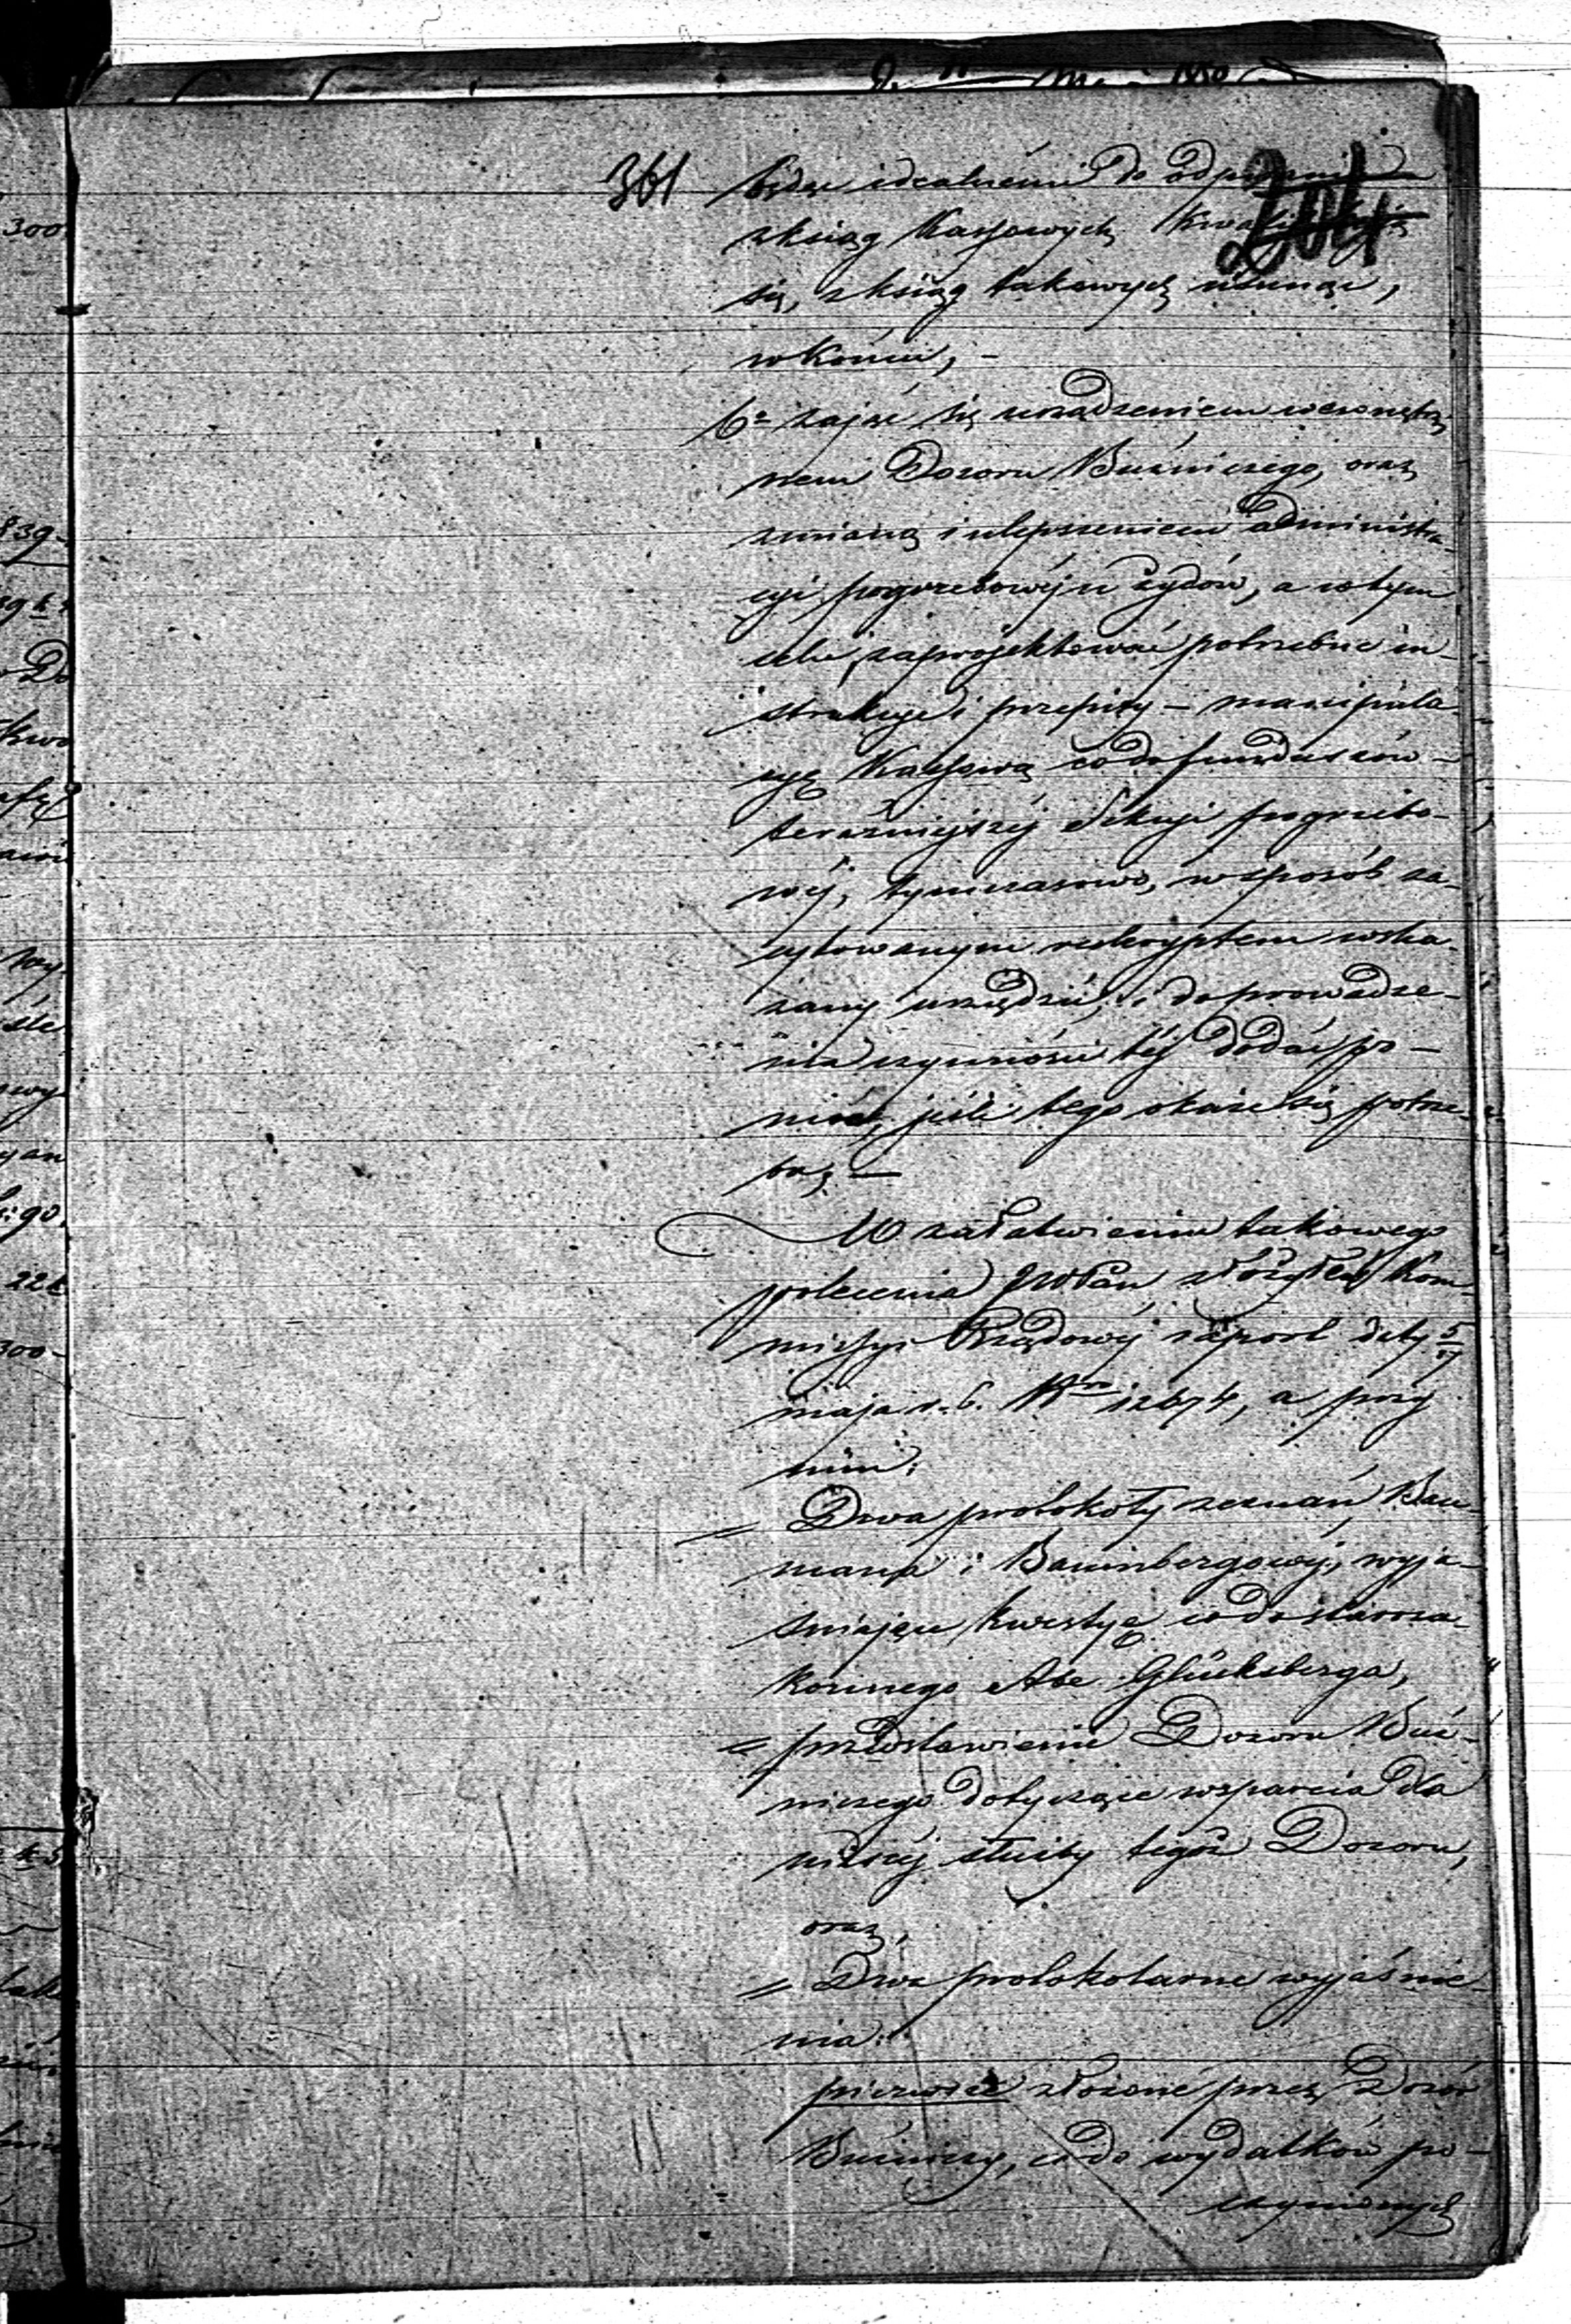 361
204
będąc idealnemi do odpisania
z ksiąg Kassowych kwalifikują
się, z ksiąg takowych usunąć,
w końcu, –
6º zająć się urządzeniem wewnętrz-
nem Dozoru Bóżniczego, oraz
zmianą i ulepszeniem administra-
cyi pogrzebowéj u żydów, a w tym
celu, zaprojektować potrzebne in-
strukcye i przepisy – manipula-
cyę Kassową co do funduszów –
teraźniejszéj Sekcyi pogrzebo-
wéj, tymczasowo, w sposób za-
cytowanym reskryptem wska-
zany urządzić, i do prowadze-
nia czynności téj dodać po-
moc, jeśli tego okaże się potrze-
bą; –
W załatwieniu takowego
polecenia JW Pan złożyłeś Kom-
missyi Rządowéj raport daty 5/17
maja r. b. Nro 12674, a przy
nim:
= Dwa protokoły zeznań, Bau-
mana i Baumbergowéj, wyja-
śniające kwestyę co do staroza-
konnego Abe Glücksberga,
= przedstawienie Dozoru Bóż-
niczego dotyczące wsparcia dla
niższéj służby tegoż Dozoru,
oraz,
= Dwa protokolarne wyjaśnie-
nia:
pierwsze złożone przez Dozór
Bóżniczy, co do wydatków po-
czynionych